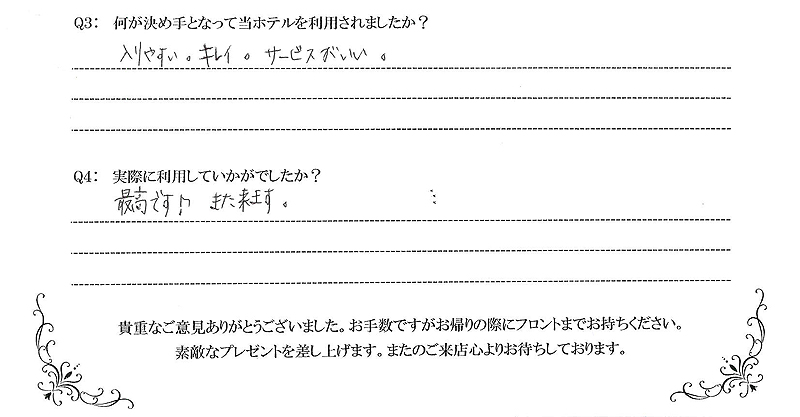 Q3： 何が決め手となって当ホテルを利用されましたか？
入りやすい。キレイ。サービスがいい。
Q4： 実際に利用していかがでしたか？
最高です!! また来ます。
貴重なご意見ありがとうございました。お手数ですがお帰りの際にフロントまでお持ちください。
素敵なプレゼントを差し上げます。またのご来店心よりお待ちしております。